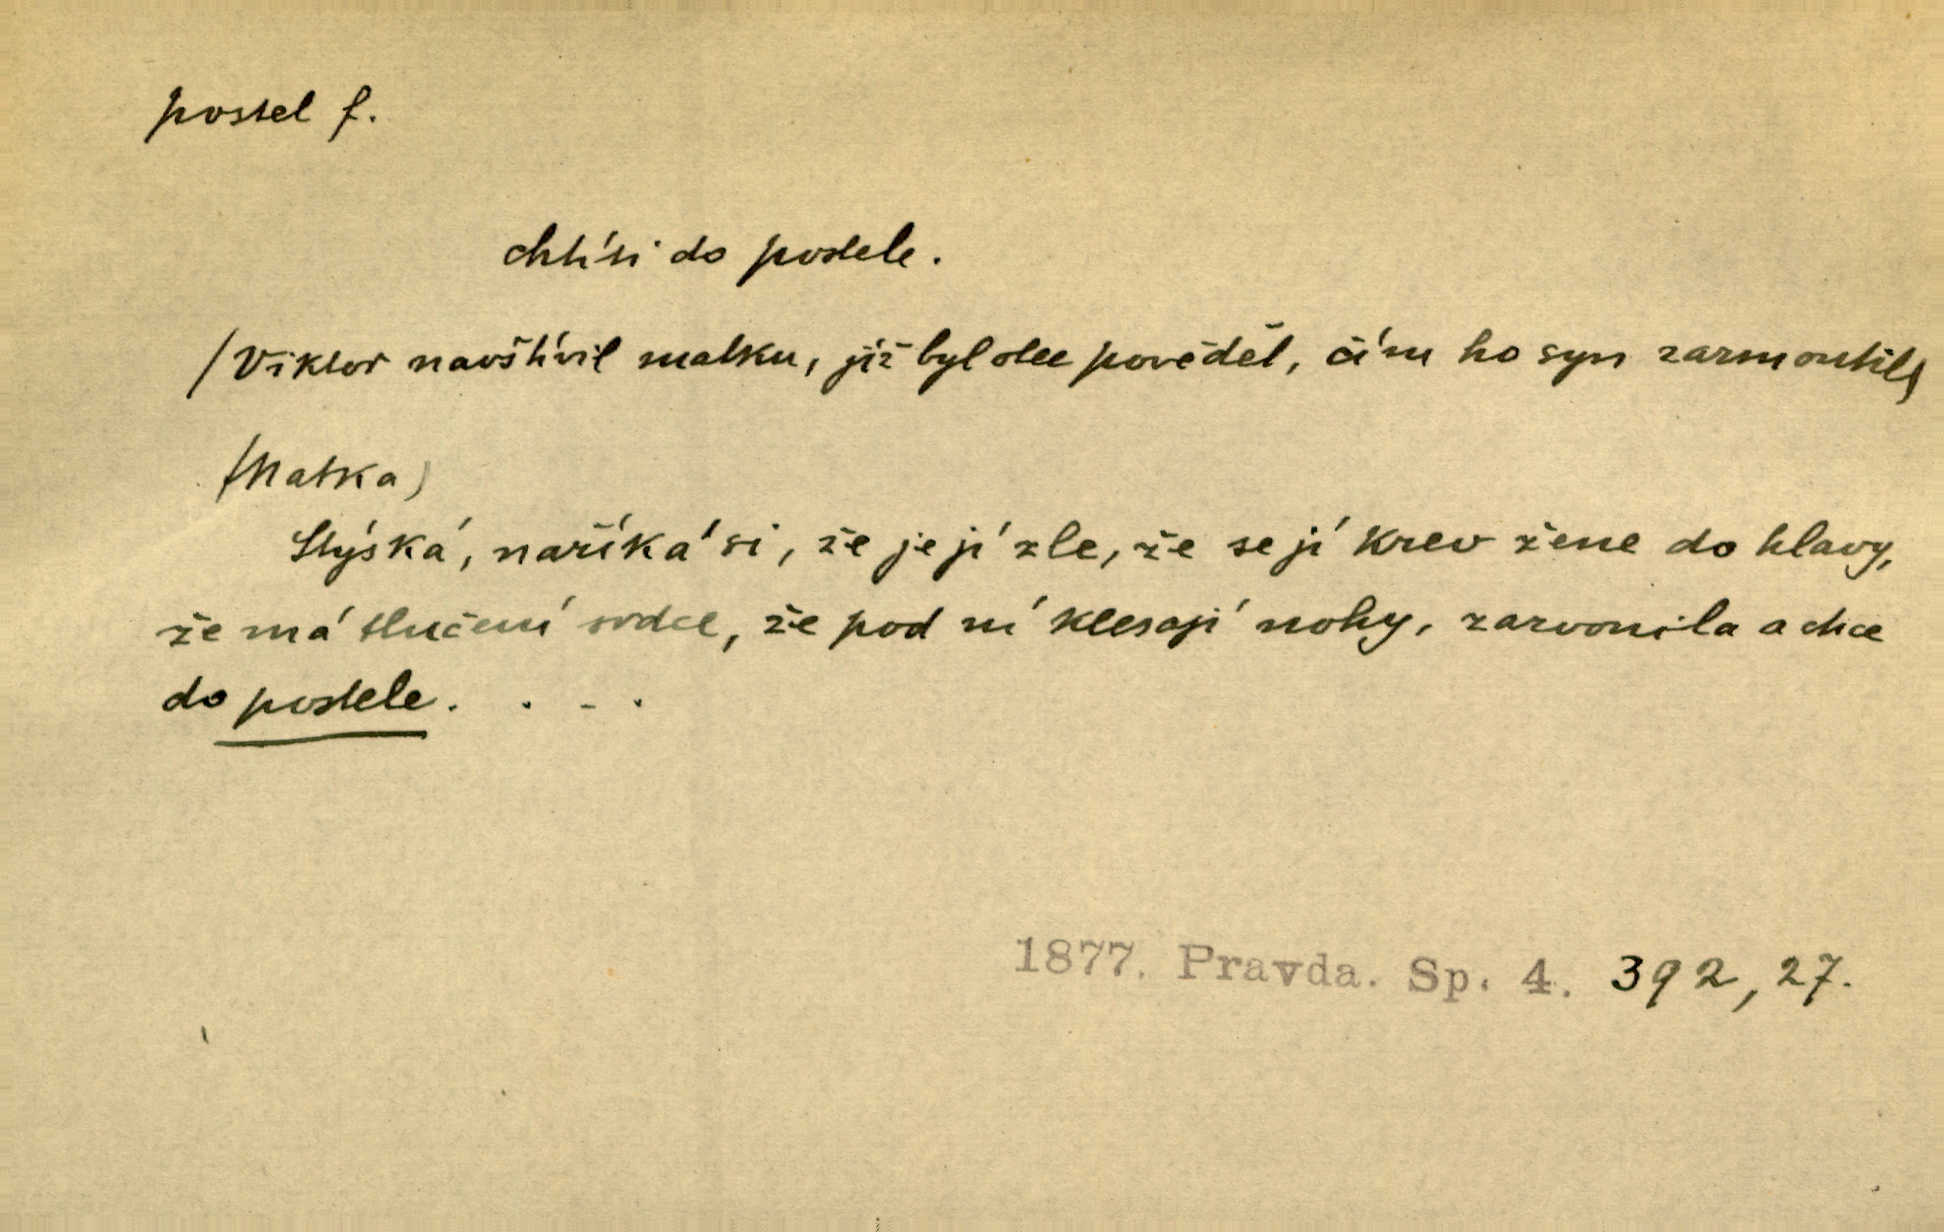 postel f.
chtíti do postele.
(Viktor navštívil matku, jíž byl otec pověděl, čím ho syn zarmoutil)
(Matka)
Stýská, naříká si, že je jí zle, že se jí krev žene do hlavy,
že má tlučení srdce, že pod ní klesají nohy, zazvonila a chce
do postele. . - .
1877. Pravda. Sp. 4. 392, 27.